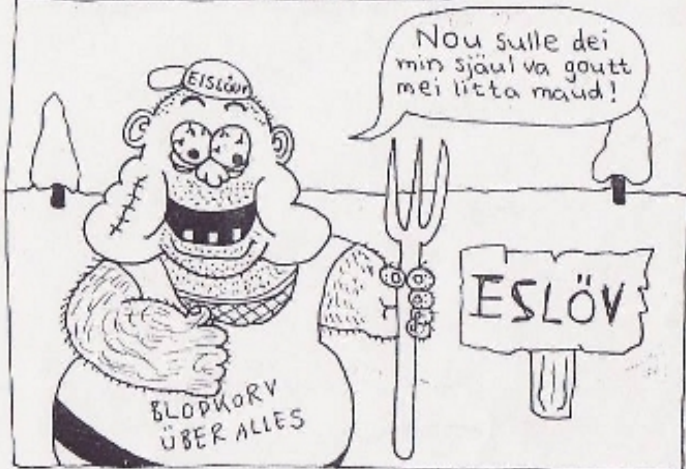 Nou sulle dei
min sjäul va goutt
mei litta maud!
EISLÖV
ESLÖV
BLODKORV
ÜBER ALLES